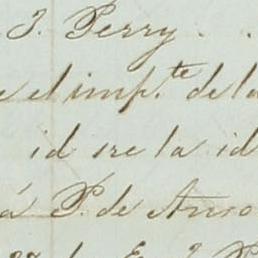 J. Perry . .
e el imp.te de la
id sre la id
á P. de Anso